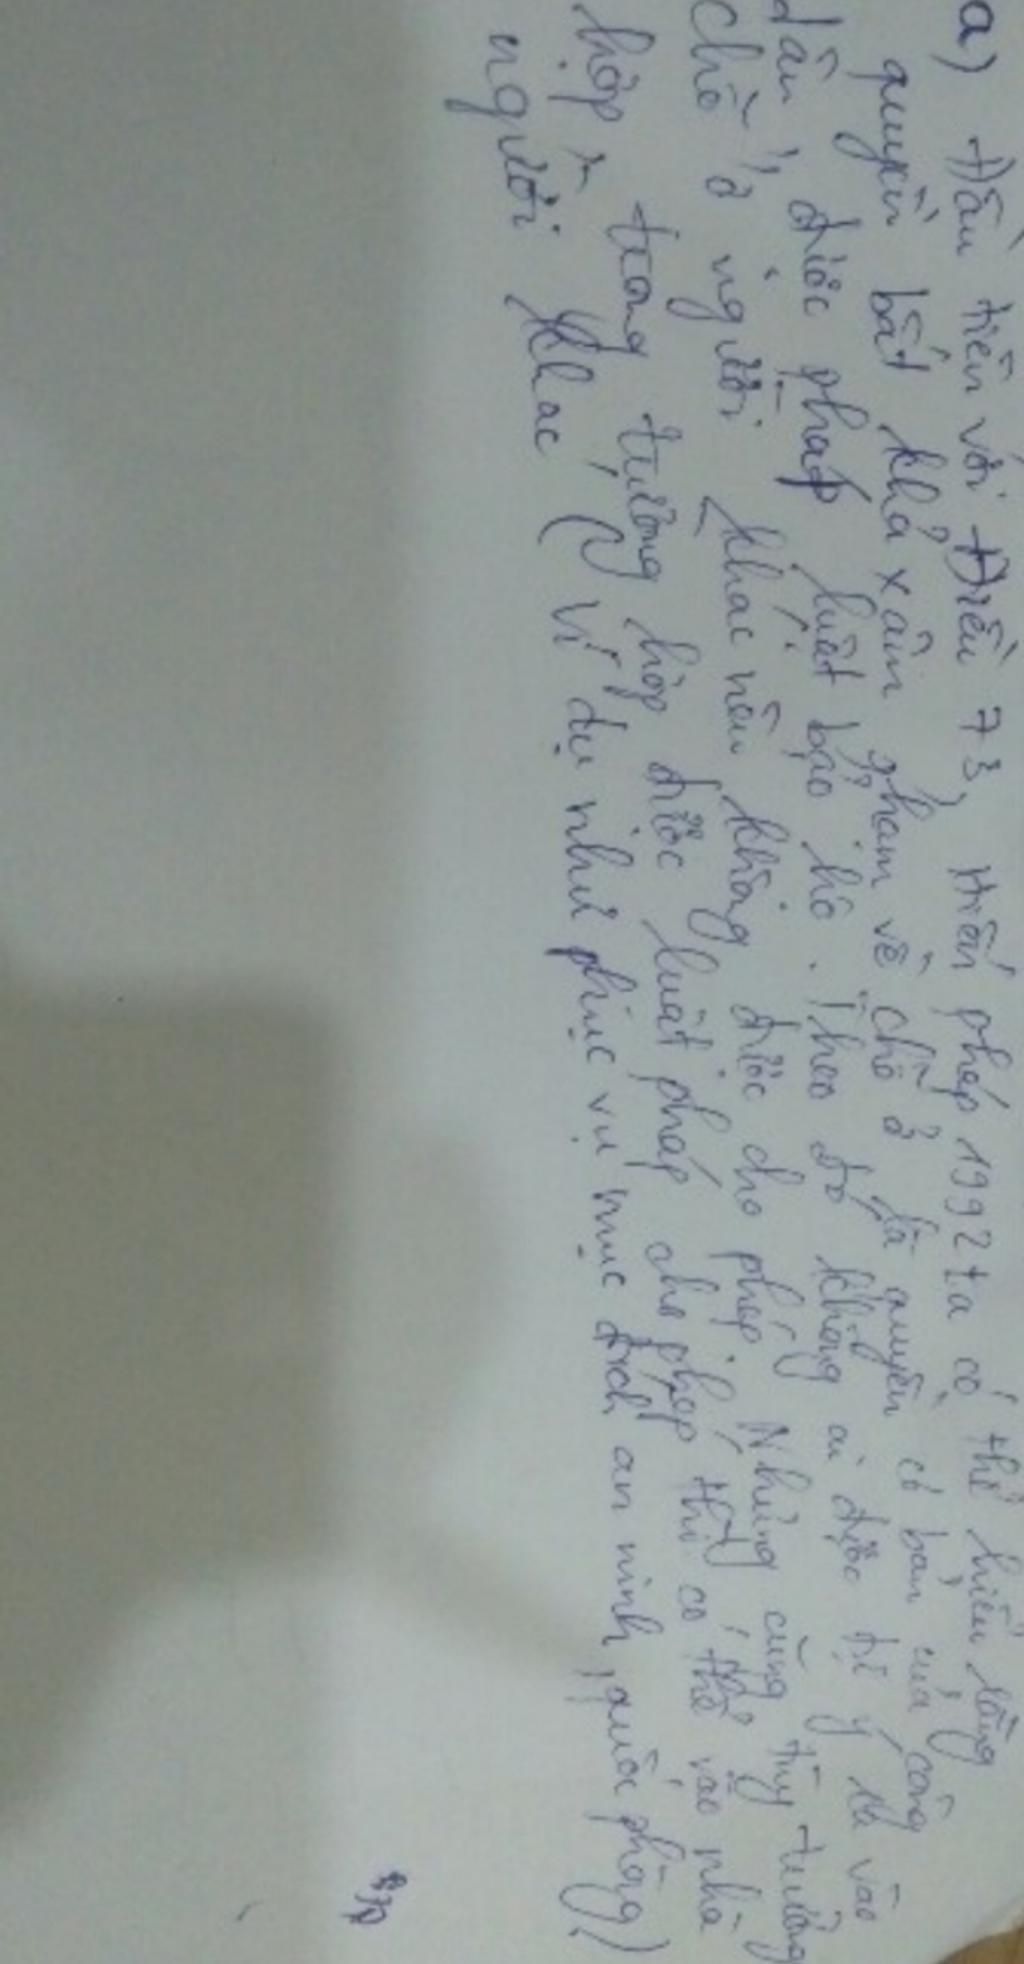 a) Đầu tiên với Điều 73, Hiến pháp 1992 ta có thể hiểu rằng
quyền bất khả xâm phạm về chỗ ở là quyền cơ bản của công
dân, được pháp luật bảo hộ. Theo đó không ai được tự ý vào
chỗ ở người khác nếu không được cho phép. Nhưng cũng tùy trường
hợp, trong trường hợp được luật pháp cho phép thì có thể vào nhà
người khác (Ví dụ như phục vụ mục đích an ninh, quốc phòng)